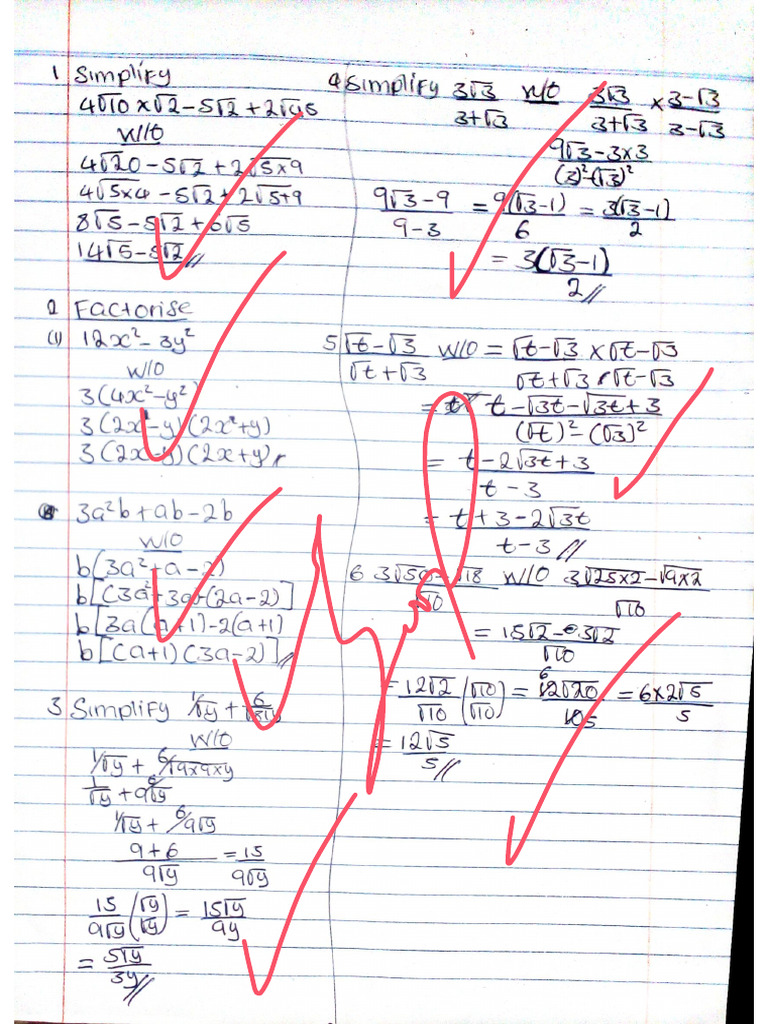 1 Simplify
4√10 × √2 – 5√2 + 2√45
W/O
4√20 – 5√2 + 2√5×9
4√5×4 – 5√2 + 2√5+9
8√5 – 5√2 + 6√5
14√5 – 5√2 //
2 Factorise
(1) 12x² – 3y²
W/O
3(4x² – y²)
3(2x – y)(2x + y)
3(2x – y)(2x + y)
3a²b + ab – 2b
W/O
b(3a² + a – 2)
b[(3a² + 3a) – (2a – 2)]
b[3a(a+1) – 2(a+1)
b[(a+1)(3a–2)] //
3 Simplify 1/√y + 6/√81y
W/O
1/√y + 6/√9×9×y
1/√y + 6/9√y
1/√y + 6/9√y
9+6/9√y = 15/9√y
15/9√y (√y/√y) = 15√y/9y
= 5√y/3y //
4 Simplify 3√3/3+√3 W/O 3√3/3+√3 × 3–√3/3–√3
9√3 – 3×3/(3)² – (√3)²
9√3 – 9/9 – 3 = 9(√3–1)/6 = 3(√3–1)/2
= 3(√3–1)/2 //
5 √t – √3/√t + √3 W/O = √t – √3/√t + √3 × √t – √3/√t – √3
= t – √3t – √3t + 3/(√t)² – (√3)²
= t – 2√3t + 3/t – 3
= t + 3 – 2√3t/t – 3 //
6 3√50 – √18/√10 W/O 3√25×2 – √9×2/√10
= 15√2 – 3√2/√10
= 12√2/√10 (√10/√10) = 12√20/10 = 6×2√5/5
= 12√5/5 //